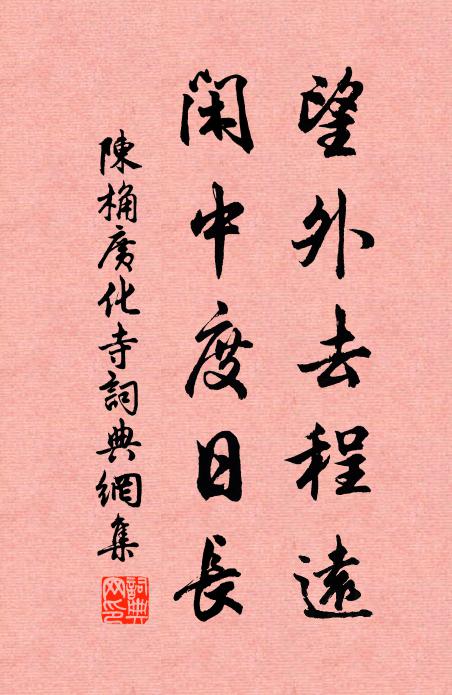 望外去程遠
閑中度日長
陳桷廣化寺詞典網集
詞典網印